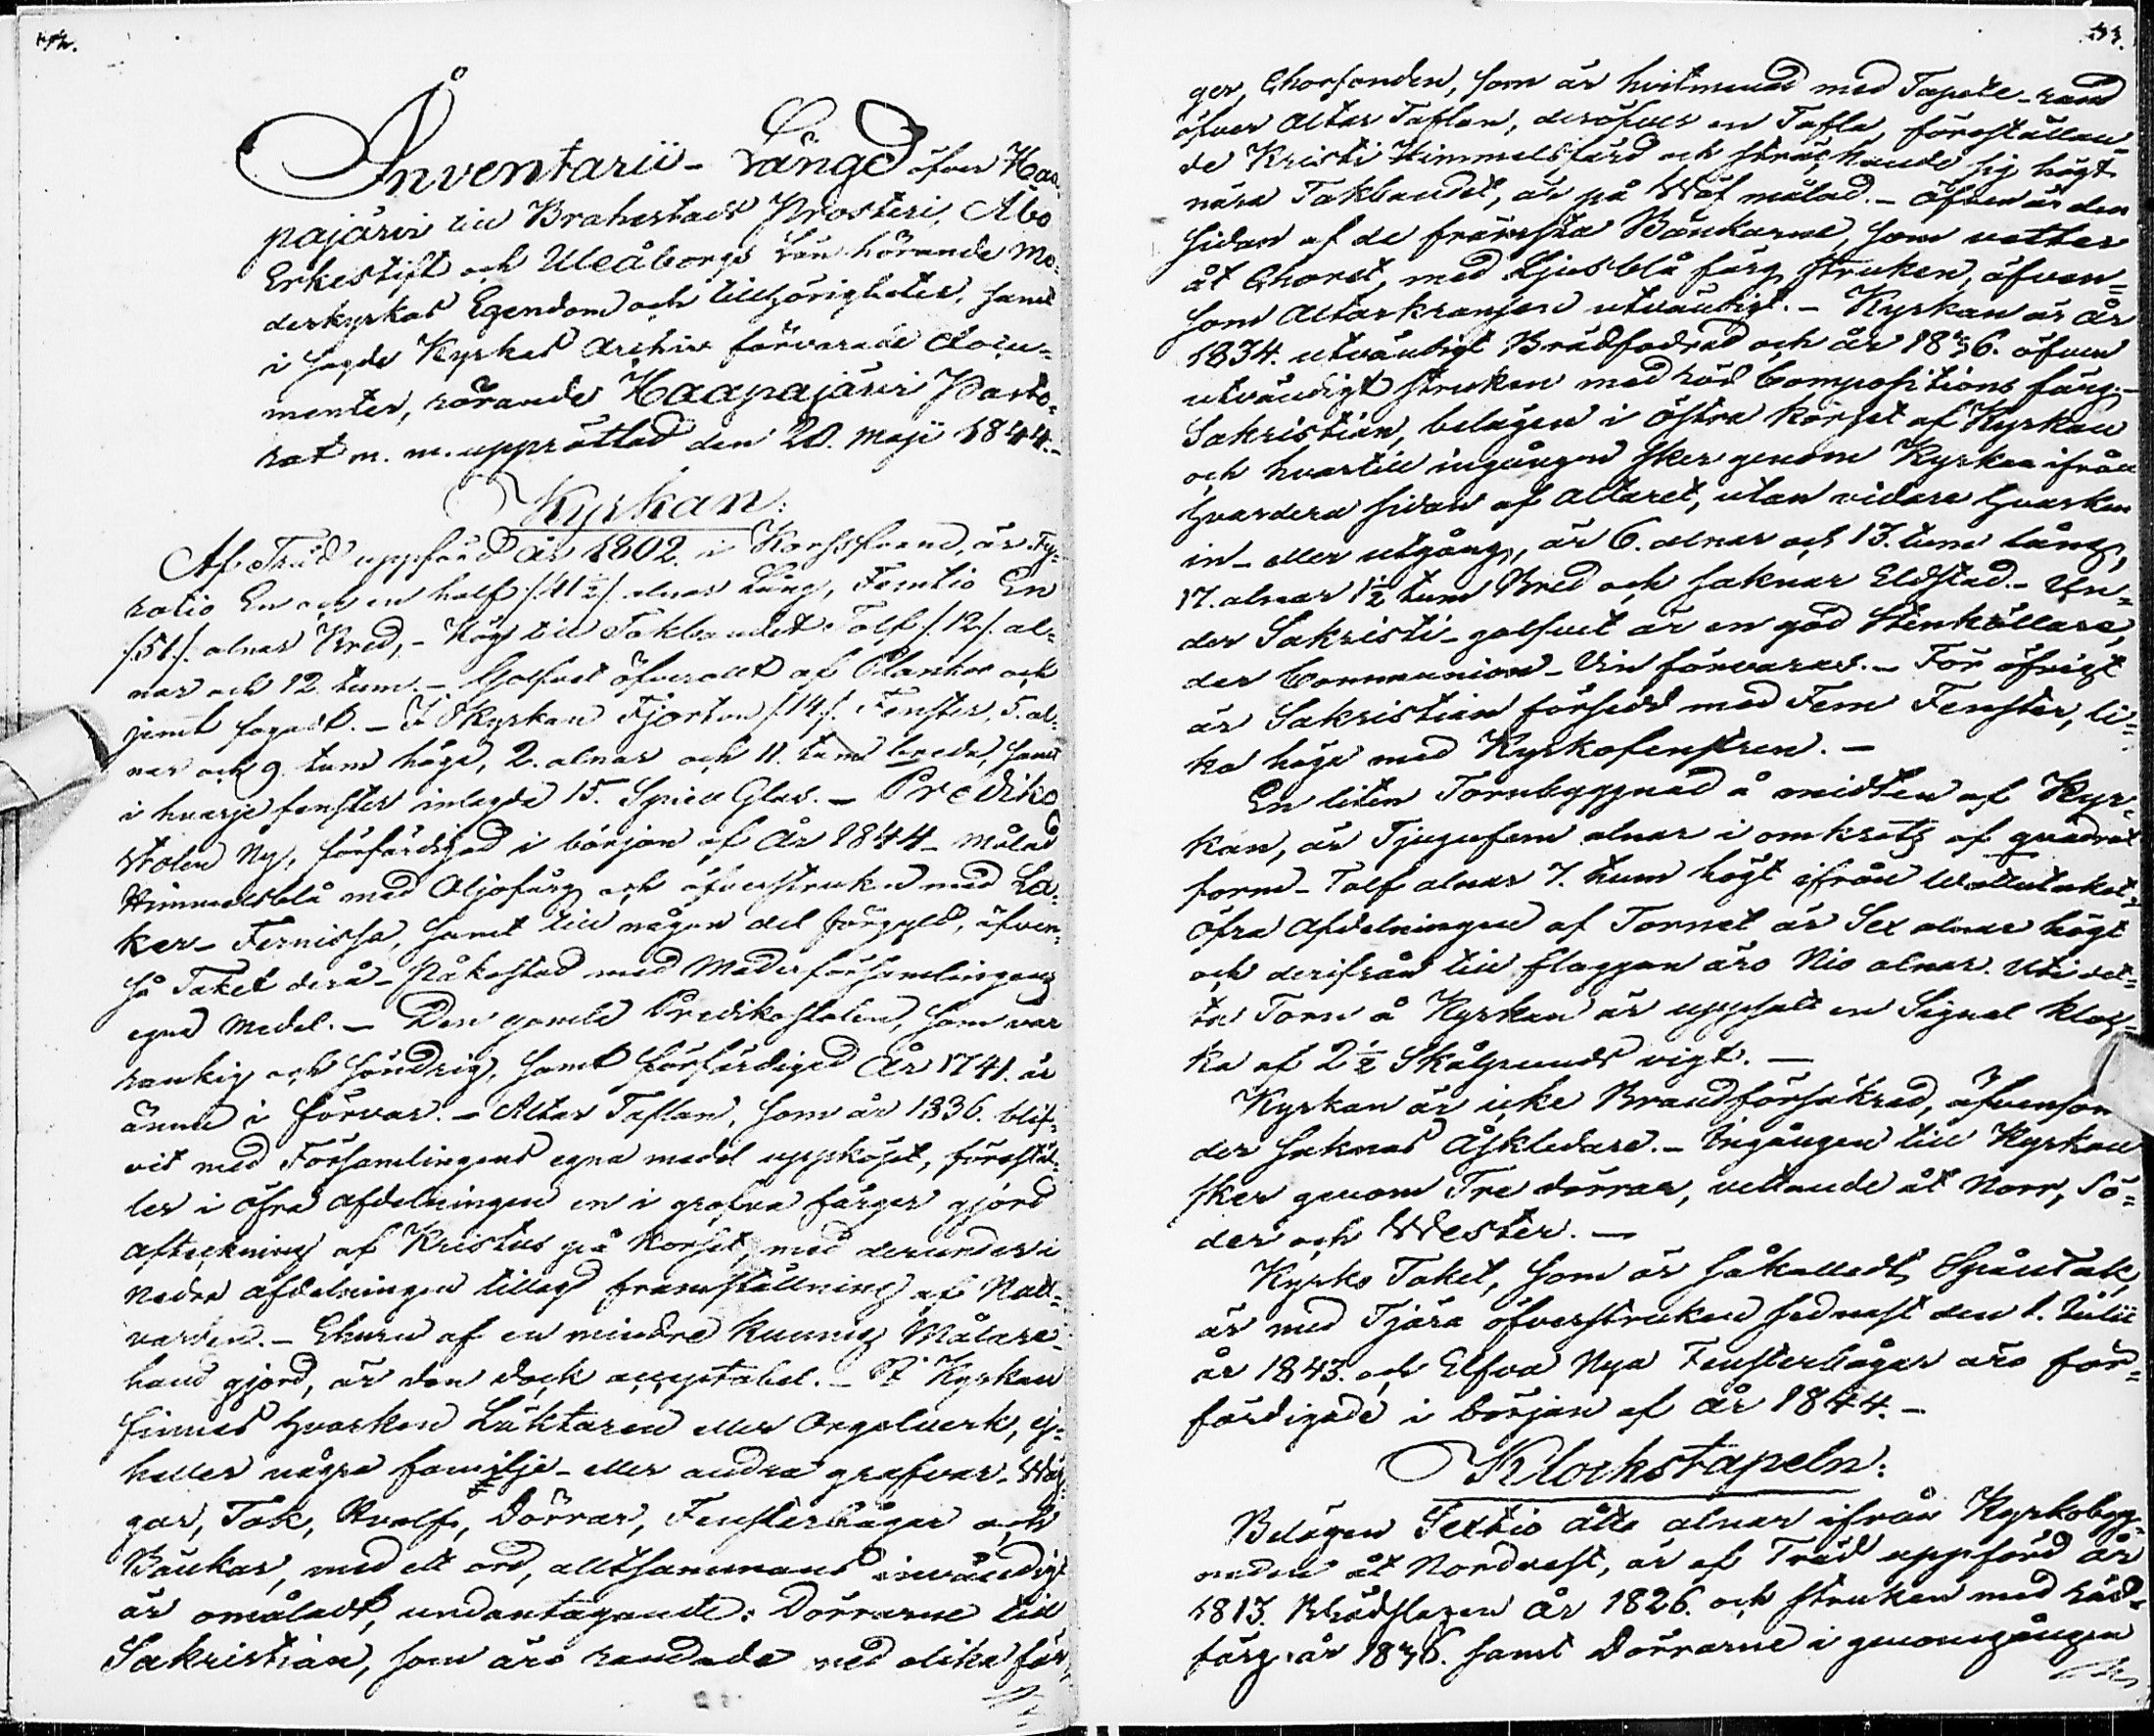 Inventarii-Längd öfver Haa-
pajärvi till Brahestads Prosteri, Åbo
Erkestift och Uleåborgs Län hörande Mo-
derkyrkas Egendom och tillhörigheter, samt
i sagde Kyrkas Archiv förvarade docu-
menter, rörande Haapajärvi Pasto-
rat m. m. upprättad den 20. Maji 1844.-
Kyrkan:
Af Träd uppförd År 1802. i Korssform, är Fy-
ratio En och en half /.41½/. alnar Lång, Femtio En
/.51./. alnar Bred,- Hög till Takbandet Tolf /.12./. al-
nar och 12. tum.- Golfvet öfverallt af Plankor och
jemt fogadt.- I Kyrkan Fjorton /.14./. Fenster, 5. al-
nar och 9. tum höga, 2. alnar och 11. tum breda, samt
i hvarje fenster inlagde 15. Sjncu Glas.- Prediko
Stolen Ny, förfärdigad i början af År 1844- målad
Himmelsblå med Oljofärg och öfverstruken med La-
ker-Fernissa, samt till någon del förgyld, äfven-
så Taket derå- Påkostad med Moderförsamlingens
egna medel.- Den gamla Predikostolen, som var
rankig och söndrig, samt förfärdigad År 1741. är
ännu i förvar.- Altar Taflan, som år 1836. blif-
vit med Församlingens egna medel uppköpt, förestäl-
ler i öfra afdelningen en i grofva färger gjord
afteckning af Kristus på Korset, med derunder i
nedra afdelningen tillagd framställning af Natt-
varden.- Ehuru af en mindre kunnig Målare-
hand gjord, är den dock acceptabel.- I Kyrkan
finnes hvarken Läktaren eller Orgelverk, ej
heller några familje- eller andra grafvar. Wäg-
gar, Tak, Hvalf, Dörrar, Fensterbågar och
Bänkar, med ett ord, alltsammans invändigt
är omåladt, undantagande: Dörrarne till
Sakristian, som äro randade med olika fär-
ger, Chorfonden, som är hvitmenad med Tapete-rand
öfver Altar Taflan, deröfver en Tafla, föreställan-
de Kristi Himmelsfärd och sträckande sig högt
nära Takbandet, är på Wäf målad.- Äfven är den
sidan af de främsta Bänkarne, som vetter
åt Choret, med Ljusblå färg struken, äfven-
som Altarkransen utvändigt.- Kyrkan är År
1834. utvändigt Brädfodrad och år 1836. äfven
utvändigt struken med röd Compositions färg.-
Sakristian, belägen i östra korset af Kyrkan
och hvartill ingången sker genom Kyrkan ifrån
hvardera sidan af altaret, utan vidare hvarken
in- eller utgång, är 6. alnar och 13. tum lång,
17. alnar 1½ tum Bred och saknar Eldstad.- Un-
der Sakristi-golfvet är en god Stenkällare,
der Communion-Vin förvaras.- För öfrigt
är Sakristian försedd med Fem Fenster, li-
ka höga med Kyrkofenstren.-
En liten Tornbyggnad å midten af Kyr-
kan, är Tjugufem alnar i omkrets af quadrat
form- Tolf alnar 7. tum högt ifrån Wattutaket,
öfra Afdelningen af Tornet är Sex alnar högt
och derifrån till flaggan äro Nio alnar. Uti det-
ta Torn å Kyrkan är uppsatt en Signal Kloc-
ka af 2½ Skålpunds vigt.-
Kyrkan är icke Brandförsäkrad, äfvensom
der saknas Åskledare.- Ingången till Kyrkan
sker genom Tre dörrar, vettande åt Norr, Sö-
der och Wester.-
Kyrko Taket, som är såkalladt Spåntak,
är med Tjära öfverstruken sednast den 1. Julii
år 1843. och Elfva Nya Fensterbågar äro för-
färdigade i början af År 1844.-
Klockstapeln:
Belägen Sextio åtta alnar ifrån Kyrkobygg-
naden åt Nordvest, är af Träd uppförd År
1813. Brädslagen år 1826. och struken med röd-
färg år 1836. samt Dörrarne i genomgången